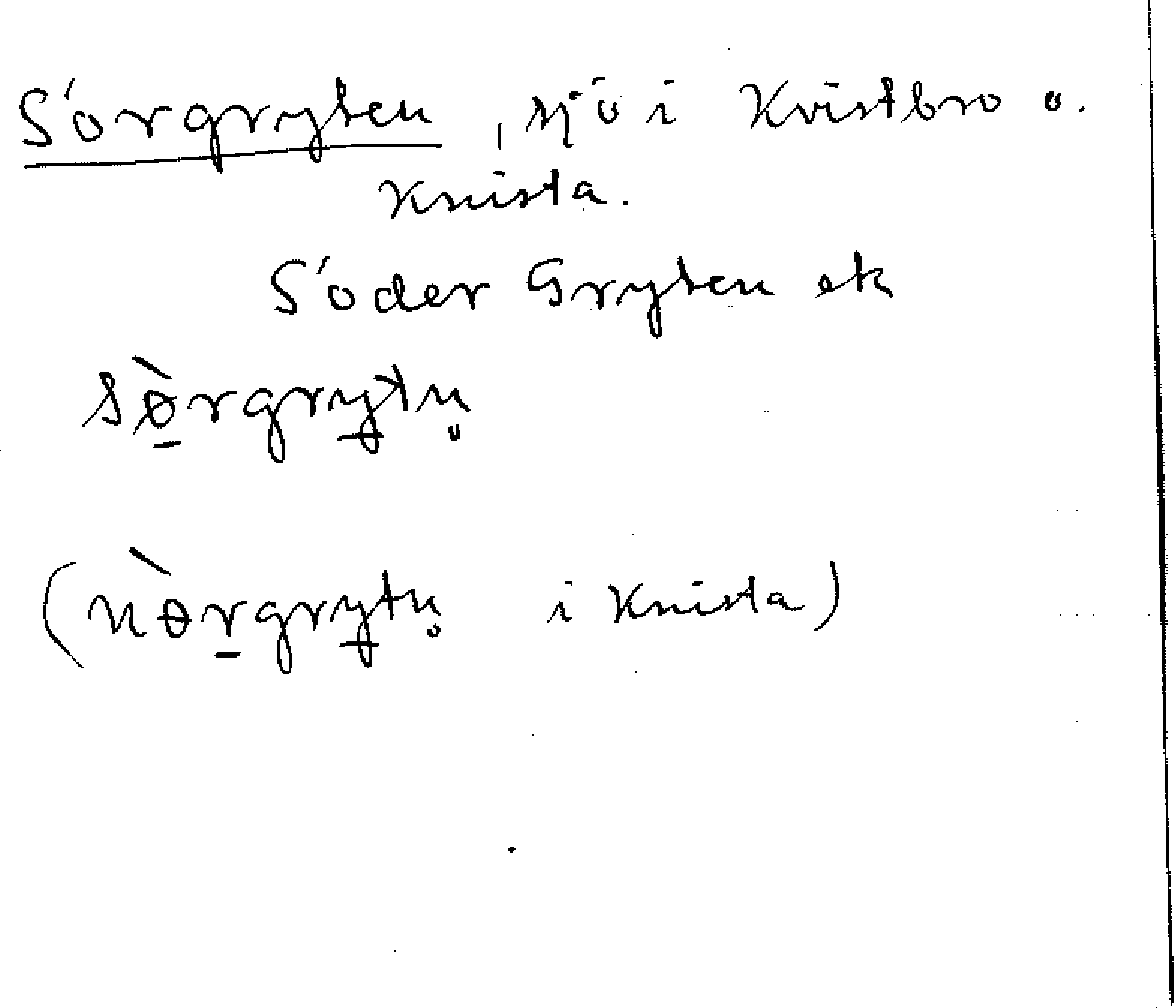 Sörgryten, sjö i Kvistbro o.
Knista.
Söder Gryten ek
sө̀rgrytn̥
(nө̀rgrytn̥ i Knista)